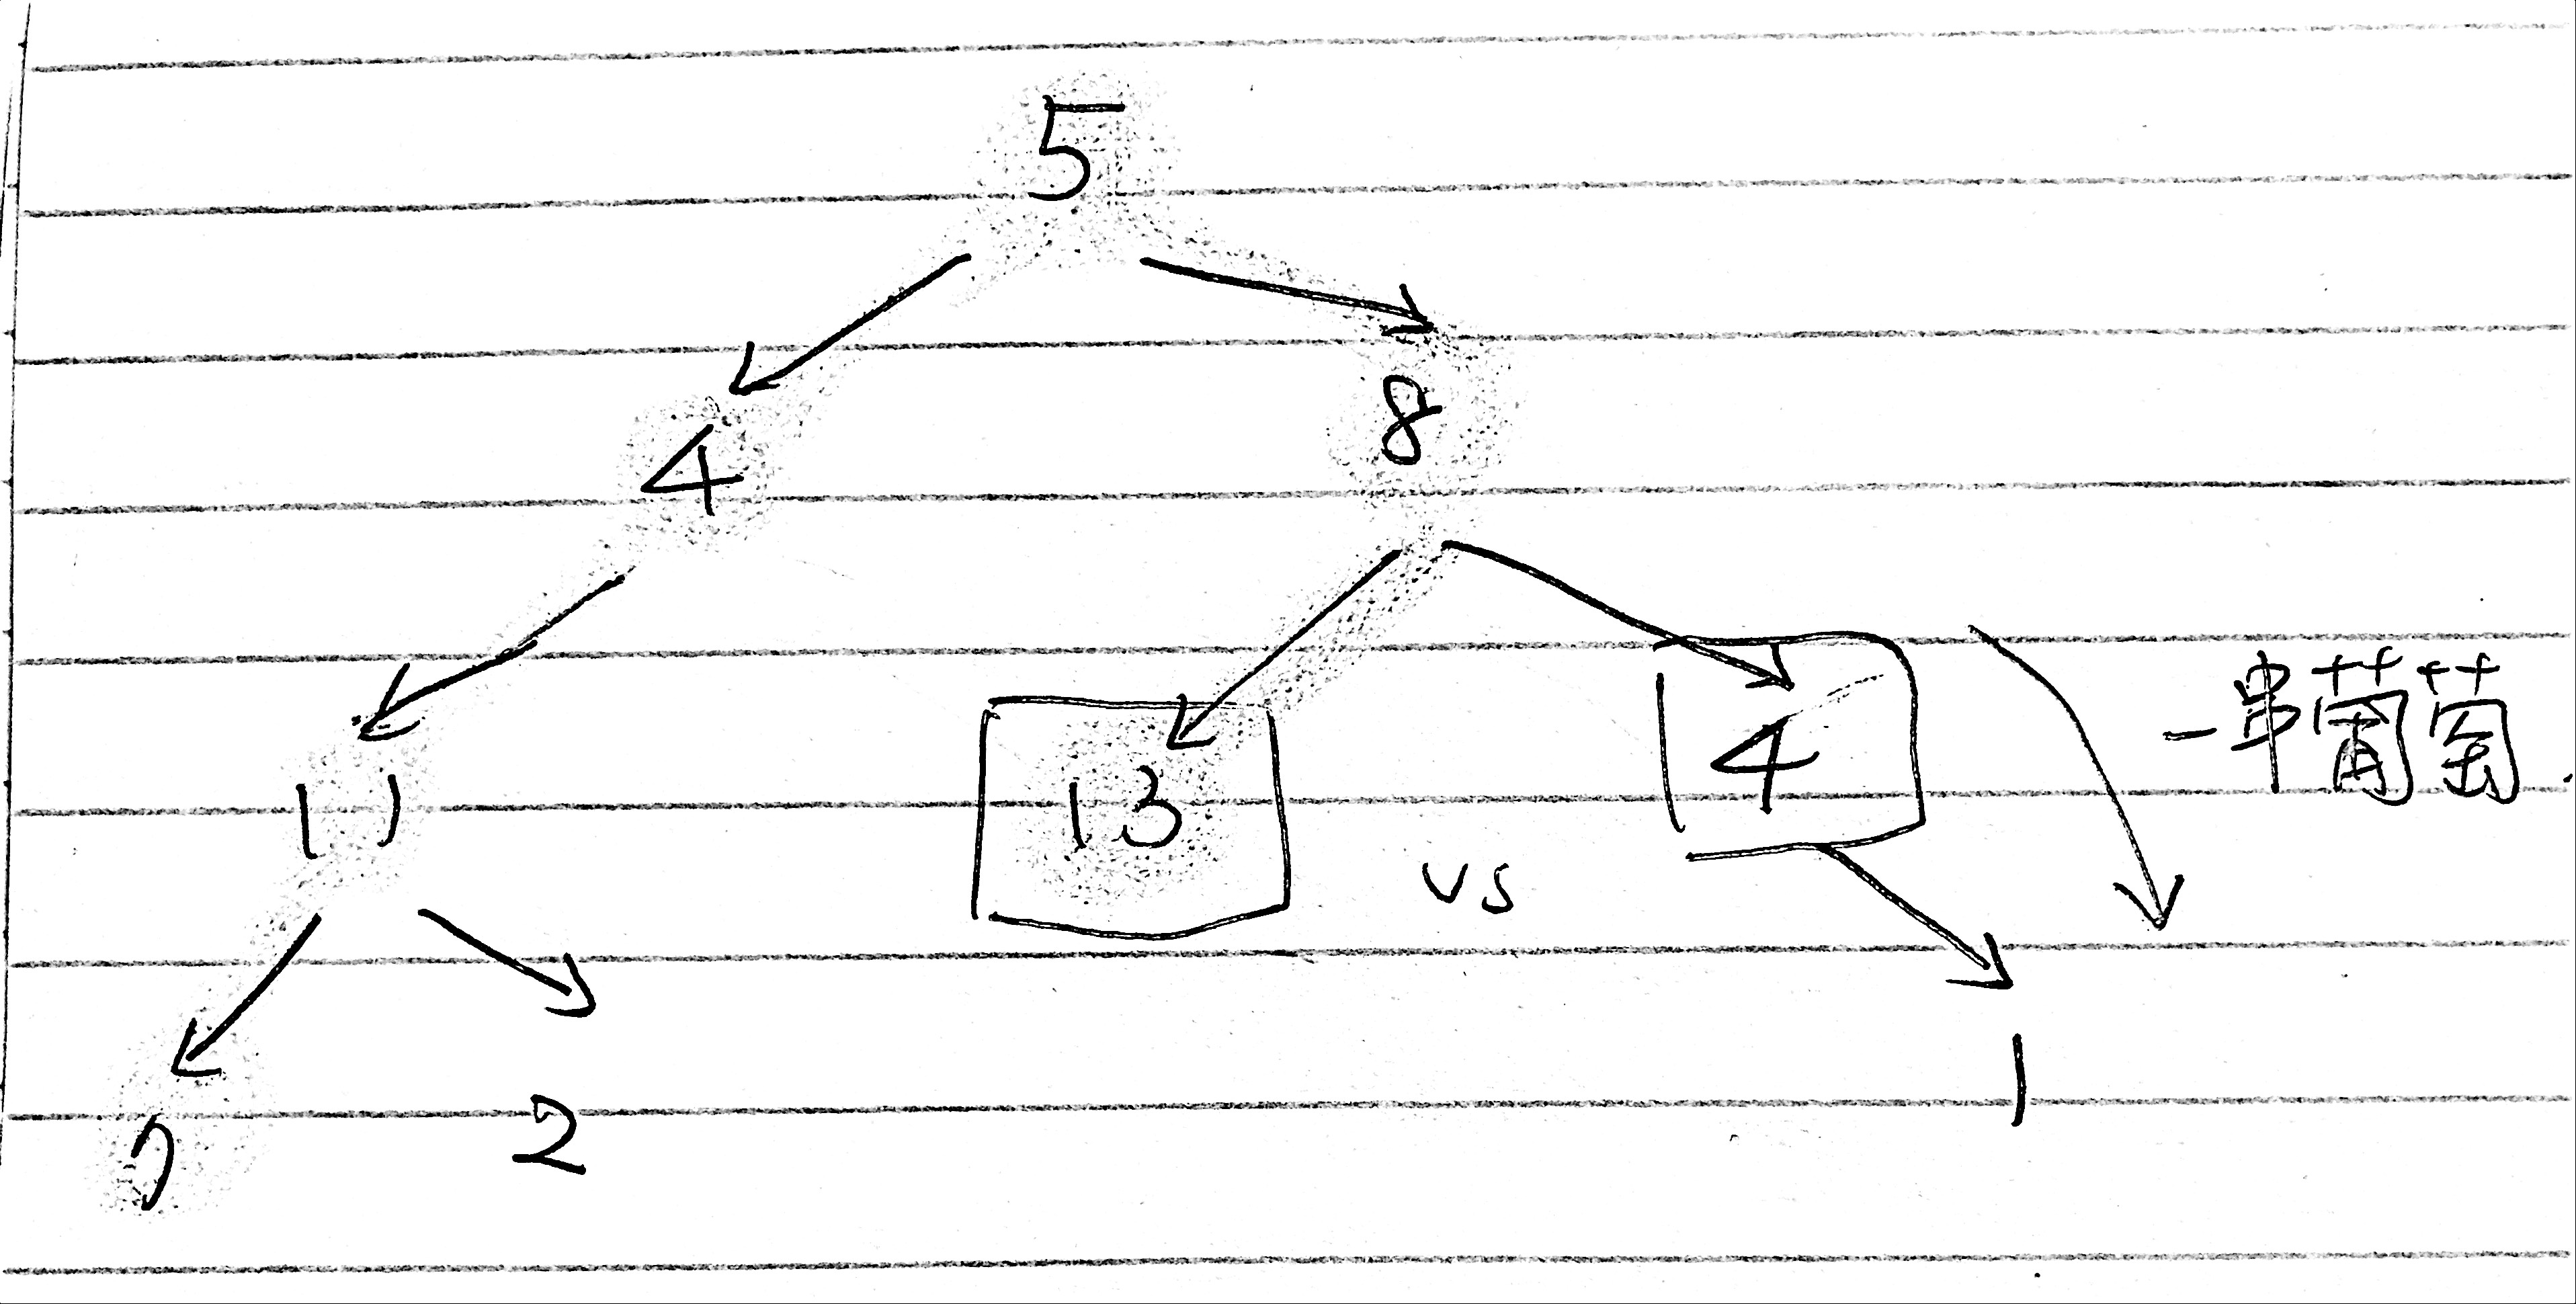 5
4 8
11 13 vs 4 一串葡萄
2 1